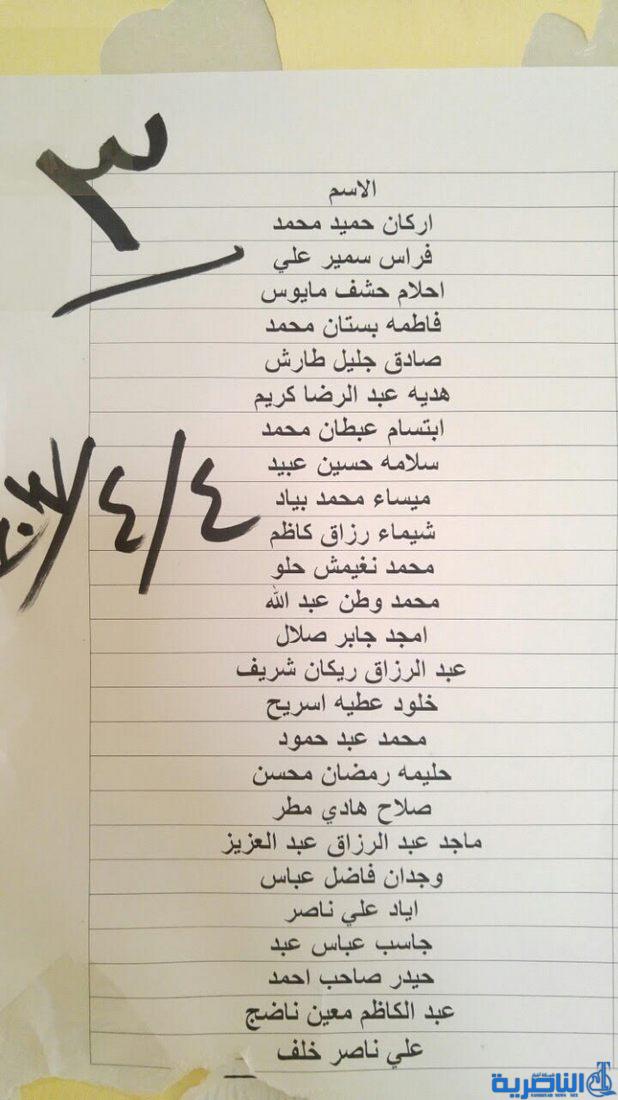 ٣
الاسم
اركان حميد محمد
فراس سمير علي
احلام حشف مايوس
فاطمه بستان محمد
صادق جليل طارش
هديه عبد الرضا كريم
ابتسام عبطان محمد
سلامه حسين عبيد
ميساء محمد بياد
شيماء رزاق كاظم
محمد نغيمش حلو
محمد وطن عبد الله
امجد جابر صلال
عبد الرزاق ريكان شريف
خلود عطيه اسريح
محمد عبد حمود
حليمه رمضان محسن
صلاح هادي مطر
ماجد عبد الرزاق عبد العزيز
وجدان فاضل عباس
اياد علي ناصر
جاسب عباس عبد
حيدر صاحب احمد
عبد الكاظم معين ناضج
علي ناصر خلف
٤/٤/
شبكة أخبار
الناصرية